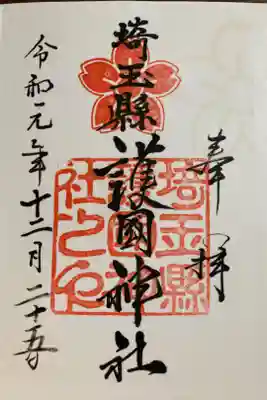 奉拝
埼玉縣護國神社
埼玉縣
社之印
令和元年十二月二十五日